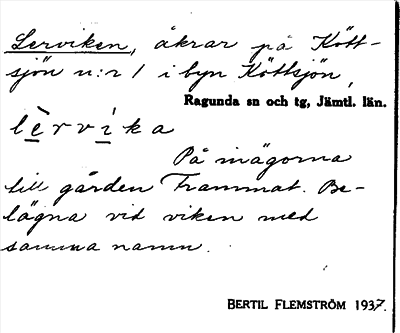 Lerviken, åkrar på Kött-
sjön n:r 1 i byn Köttsjön,
Ragunda sn och tg, Jämtl. län.
lèrvíka
På inägorna
till gården Frammat. Be-
lägna vid viken med
samma namn.
BERTIL FLEMSTRÖM 1937.